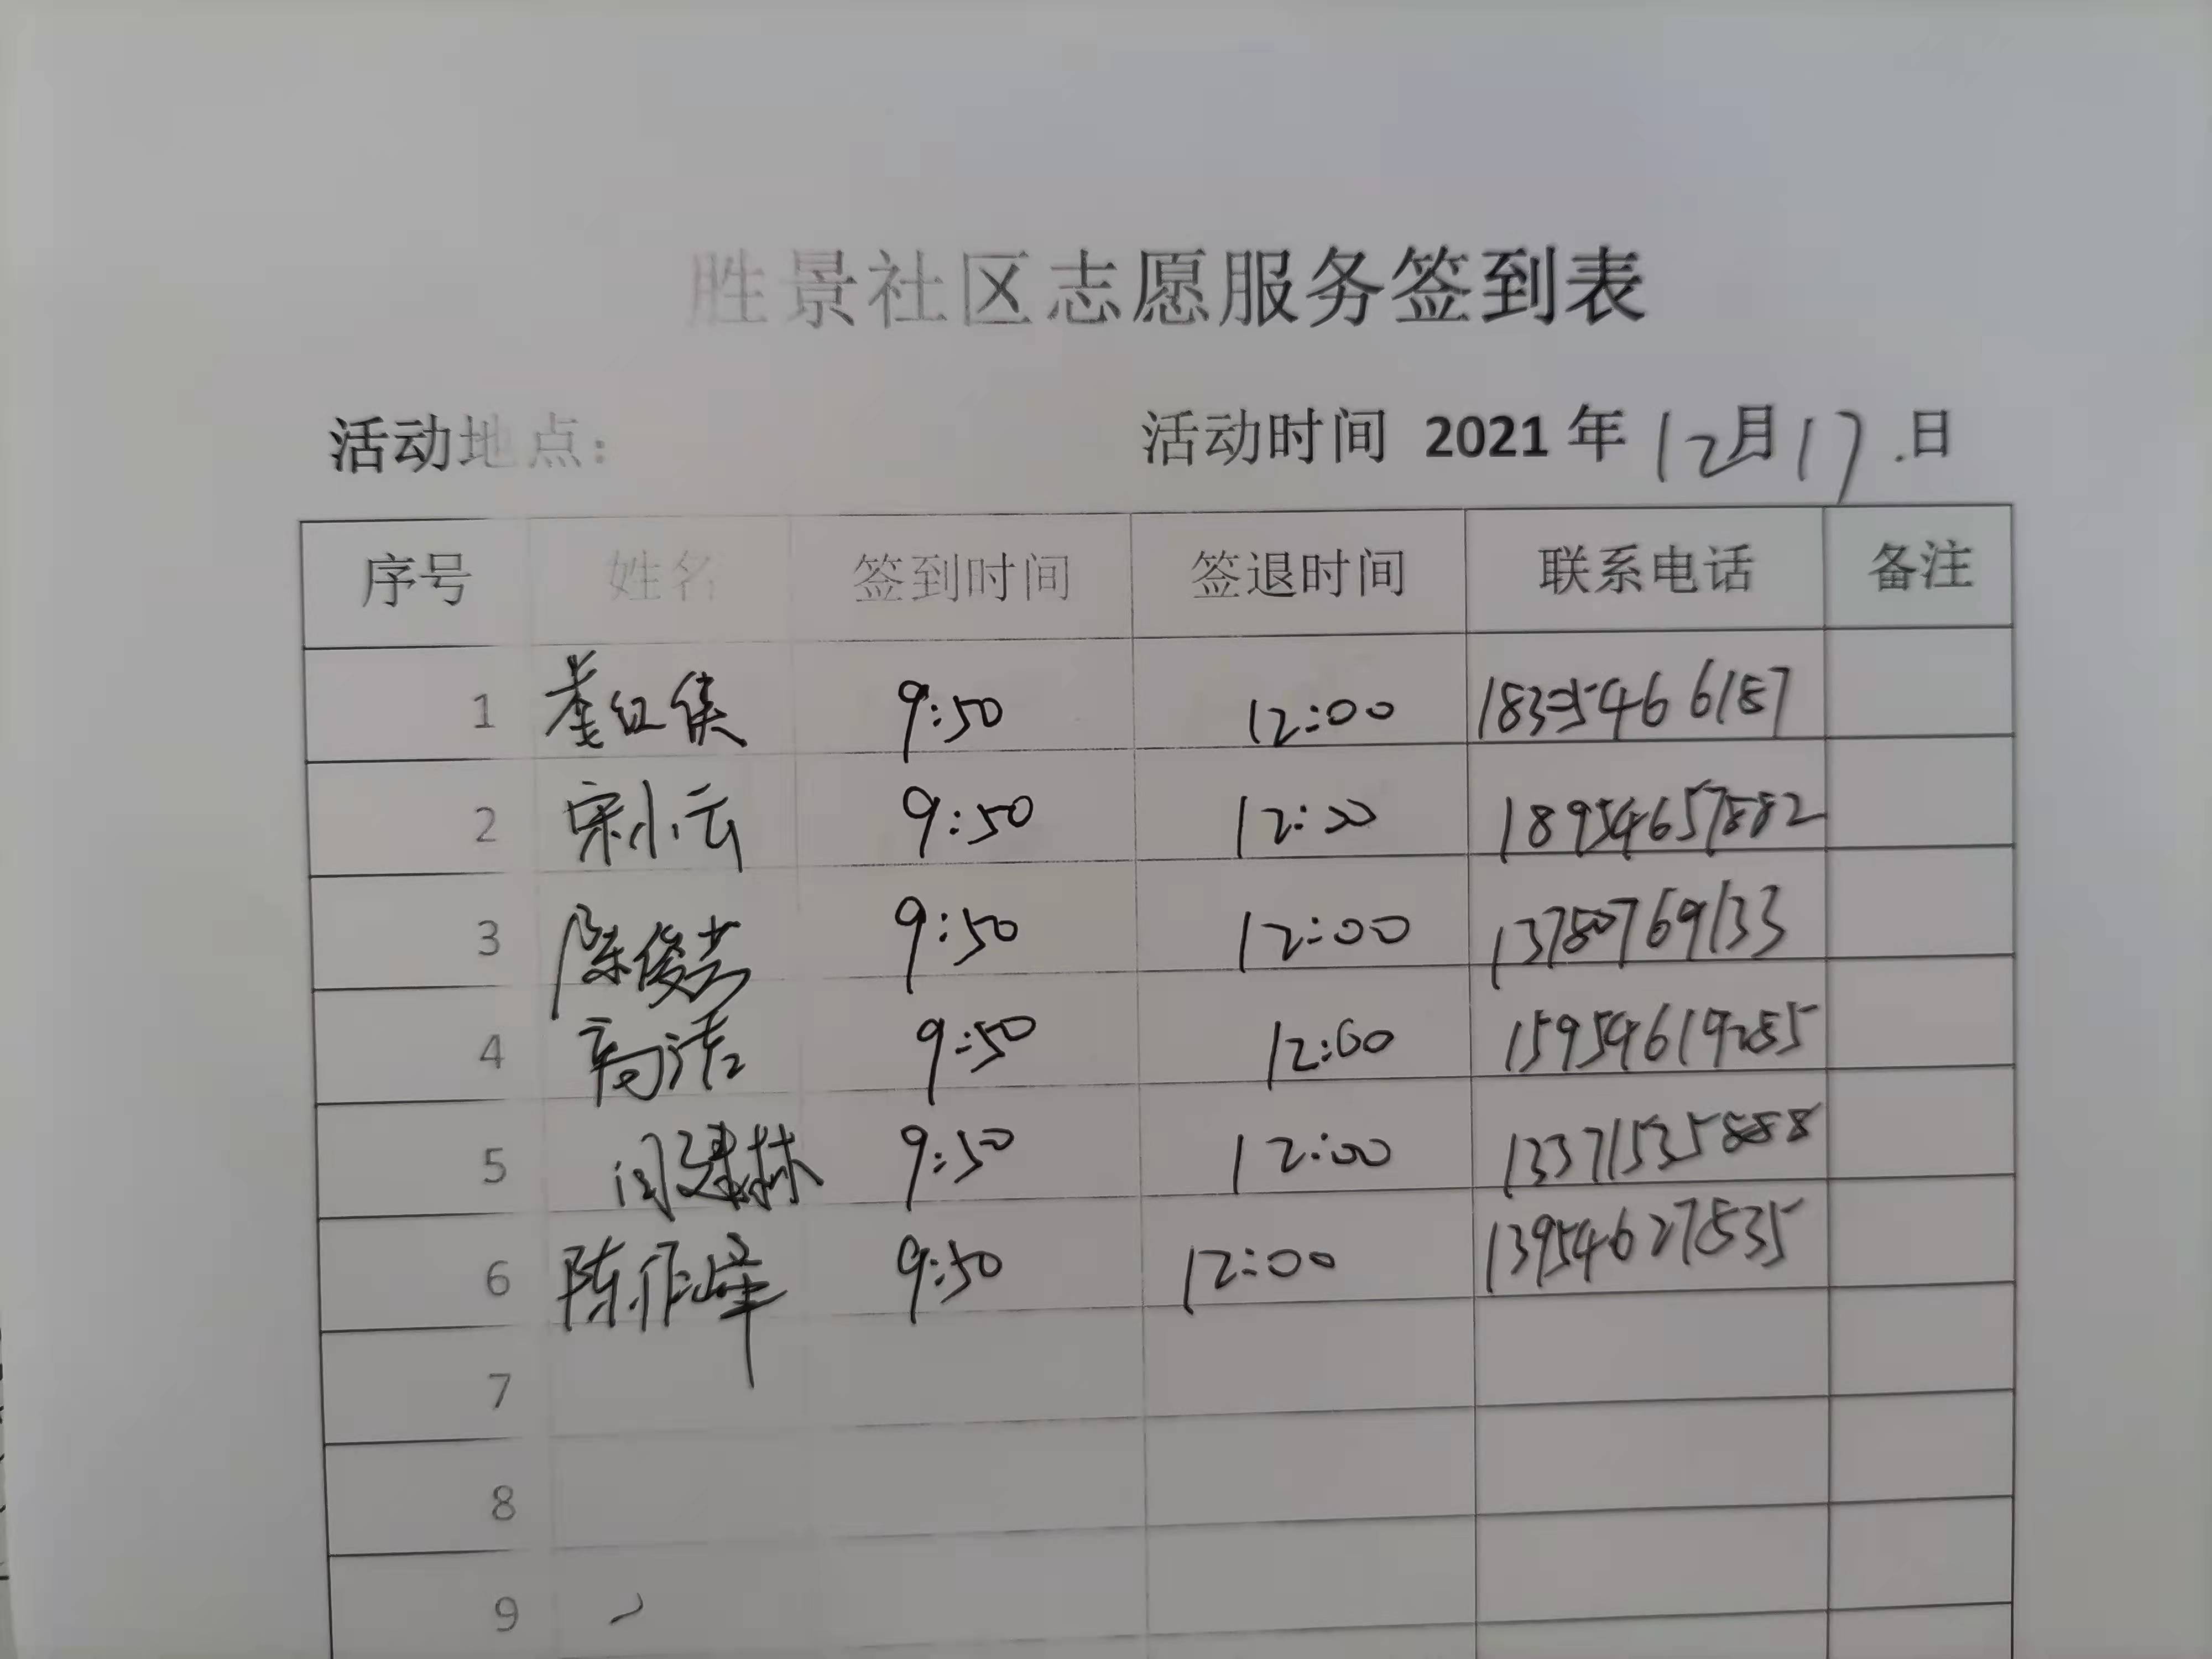 胜景社区志愿服务签到表
活动地点： 活动时间 2021 年 12月17.日
序号 姓名 签到时间 签退时间 联系电话 备注
1 董红侠 9:50 12:00 18354666187
2 宋小云 9:50 12:00 18954657882
3 陈俊芸 9:50 12:00 13780769133
4 高洁 9:50 12:00 15954619255
5 闫建林 9:50 12:00 13371535888
6 陈作峰 9:50 12:00 13954627535
7
8
9